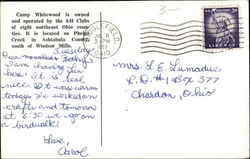 Camp Whitewood is owned
and operated by the 4-H Clubs
of eight northeast Ohio coun-
ties. It is located on Phelps
Creek in Ashtabula County,
south of Windsor Mills.
Tuesday
Dear
I am having fun
here. It is real
nice. It was warm
today. We worked on
crafts, and tomorrow
at 6:30 we go on
a birdwalk!
Love,
Carol
OHIO
Mrs. L E Lumadue
R.D. #1 Box 377
Chardon, Ohio